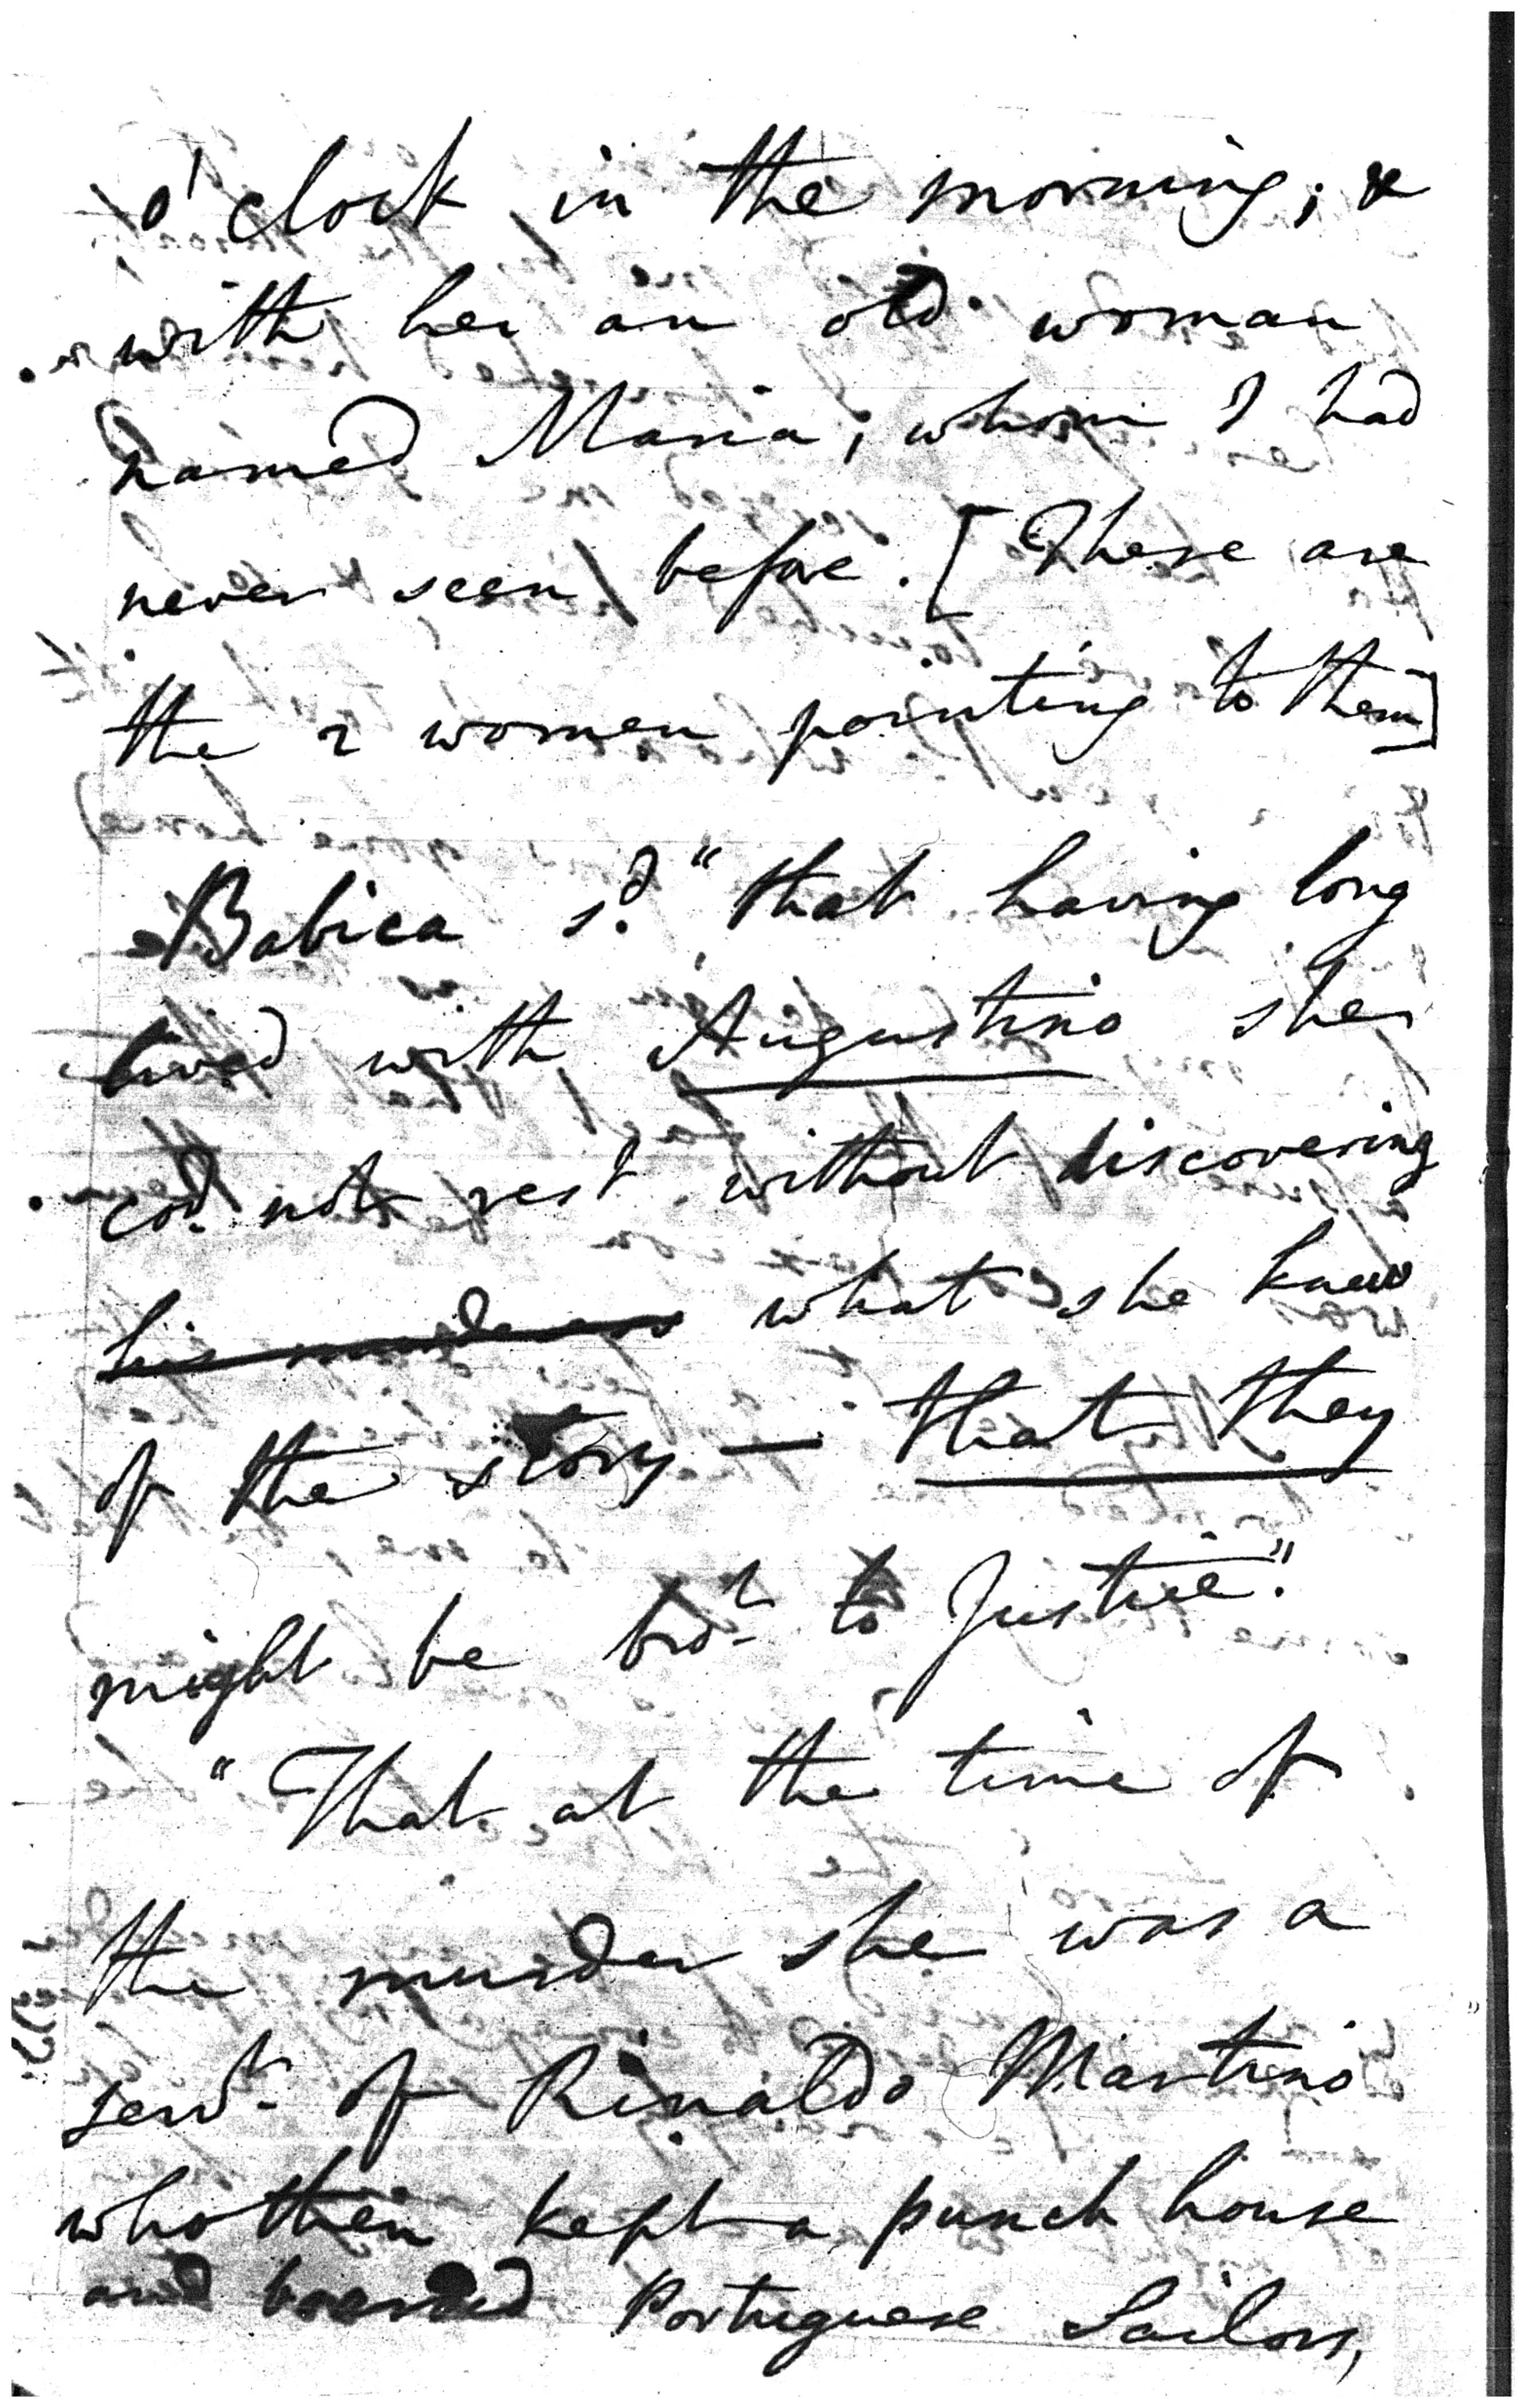 o'clock in the morning; &
with her an old woman
named Maria, whom I had
never seen before. [These are
the 2 women pointing to them]
Babica s.d "that having long
lived with Augustino she
cod. not rest without discovering
his murderers what she knew
of the story — that they
might be brot. to Justice."
"That at the time of
the murder she was a
servt. of Rinaldo Martino
who then kept a punch house
and boarded Portuguese Sailors,